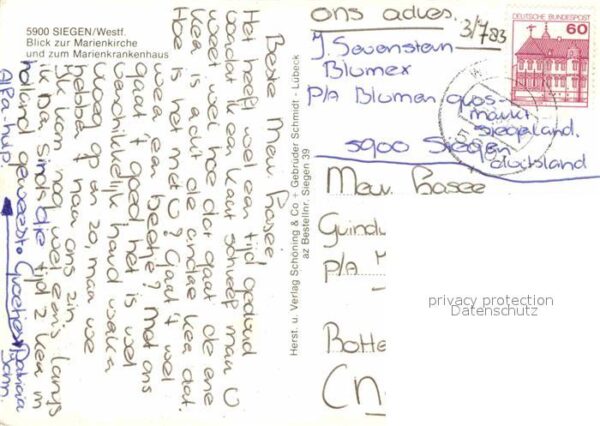 5900 SIEGEN/Westf.
Blick zur Marienkirche
und zum Marienkrankenhaus
Beste Mevr. Bosee
Het heeft wel een tijd geduurd
voordat ik een kaart schreef maar U
weet wel hoe dat gaat de ene
keer is dit de andere keer dat.
Hoe is het met U? Gaat 't wel
weer een beetje? Met ons
gaat 't goed het is wel
verschrikkelijk hard werken
vroeg op en zo, maar we
hebben 't naar ons zin
Ik kom nog wel eens langs
ik ben sinds die tijd 2 keer in
holland geweest. Groetjes Patricia
Alpa-hulp. John.
Herst. u. Verlag Schöning & Co + Gebrüder Schmidt - Lübeck
az Bestellnr. Siegen 39
Ons adres.
3/4 783
J. Sevenstern
Blumex
P/A Blumen gros-
markt
siegerland.
5900 Siegen
duitsland
DEUTSCHE BUNDESPOST
60
Mevr. Bosee
P/A
privacy protection
Datenschutz
Botte